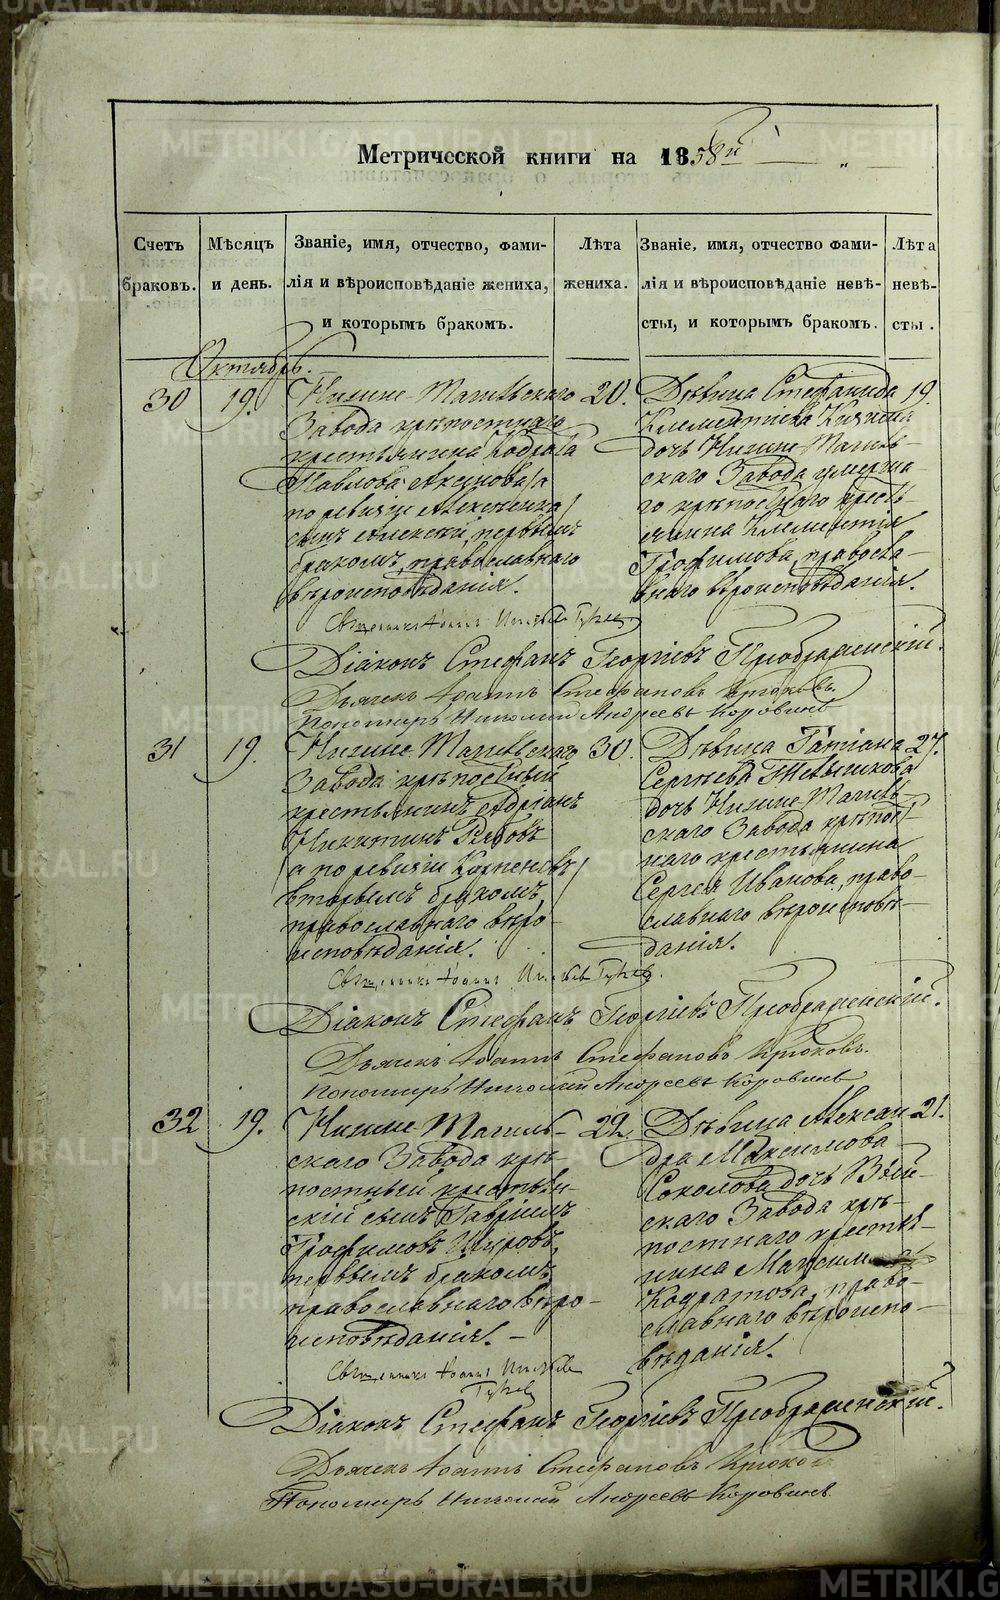 Метрической книги на 1858й
Счетъ браковъ.
Мѣсяцъ и день.
Званіе, имя, отчество, фами-
лія и вѣроисповѣданіе жениха,
и которымъ бракомъ.
Лѣта жениха.
Званіе, имя, отчество фами-
лія и вѣроисповѣданіе невѣ-
сты, и которымъ бракомъ.
Лѣта невѣ-
сты.
Октябрь.
30
19.
Нижне-Тагильскаго
Завода крѣпостнаго
крестьянина Кодрата
Павлова Аксенова /а
по ревизіи Алексѣенка/
сынъ Алексѣй, первымъ
бракомъ, православнаго
вѣроисповѣданія.
20.
Дѣвица Стефанида
Клементиева
дочь Нижне-Тагиль-
скаго Завода умерша-
го крѣпостнаго кресть-
янина Клементія
Трофимова, правосла-
внаго вѣроисповѣданія.
19.
Священникъ Іоаннъ
Діаконъ Стефанъ Георгіевъ Преображенскій.
Дьячекъ Іоаннъ Стефановъ Крюковъ.
Пономарь Николай Андреевъ Коровинъ
31
19.
Нижне-Тагильскаго
Завода крѣпостный
крестьянинъ Адріанъ
Никитинъ Рябовъ
/а по ревизіи Карпенковъ/
вторымъ бракомъ,
православнаго вѣро-
исповѣданія.
30.
Дѣвица Татіана
Сергѣева
дочь Нижне-Тагиль-
скаго Завода крѣпост-
наго крестьянина
Сергея Иванова, право-
славнаго вѣроисповѣ-
данія.
27.
Священникъ Іоаннъ
Діаконъ Стефанъ Георгіевъ Преображенскій.
Дьячекъ Іоаннъ Стефановъ Крюковъ.
Пономарь Николай Андреевъ Коровинъ
32
19.
Нижне-Тагиль-
скаго Завода крѣ-
постный крестьян-
скій сынъ Гавріилъ
Трофимовъ
первымъ бракомъ,
православнаго вѣро-
исповѣданія.
22.
Дѣвица Алексан-
дра Максимова
Соколова дочь Вый-
скаго Завода крѣ-
постнаго крестья-
нина Максима
Кодратова, право-
славнаго вѣроиспо-
вѣданія.
21.
Священникъ Іоаннъ
Діаконъ Стефанъ Георгіевъ Преображенскій.
Дьячекъ Іоаннъ Стефановъ Крюковъ
Пономарь Николай Андреевъ Коровинъ.
METRIKI.GASO-URAL.RU